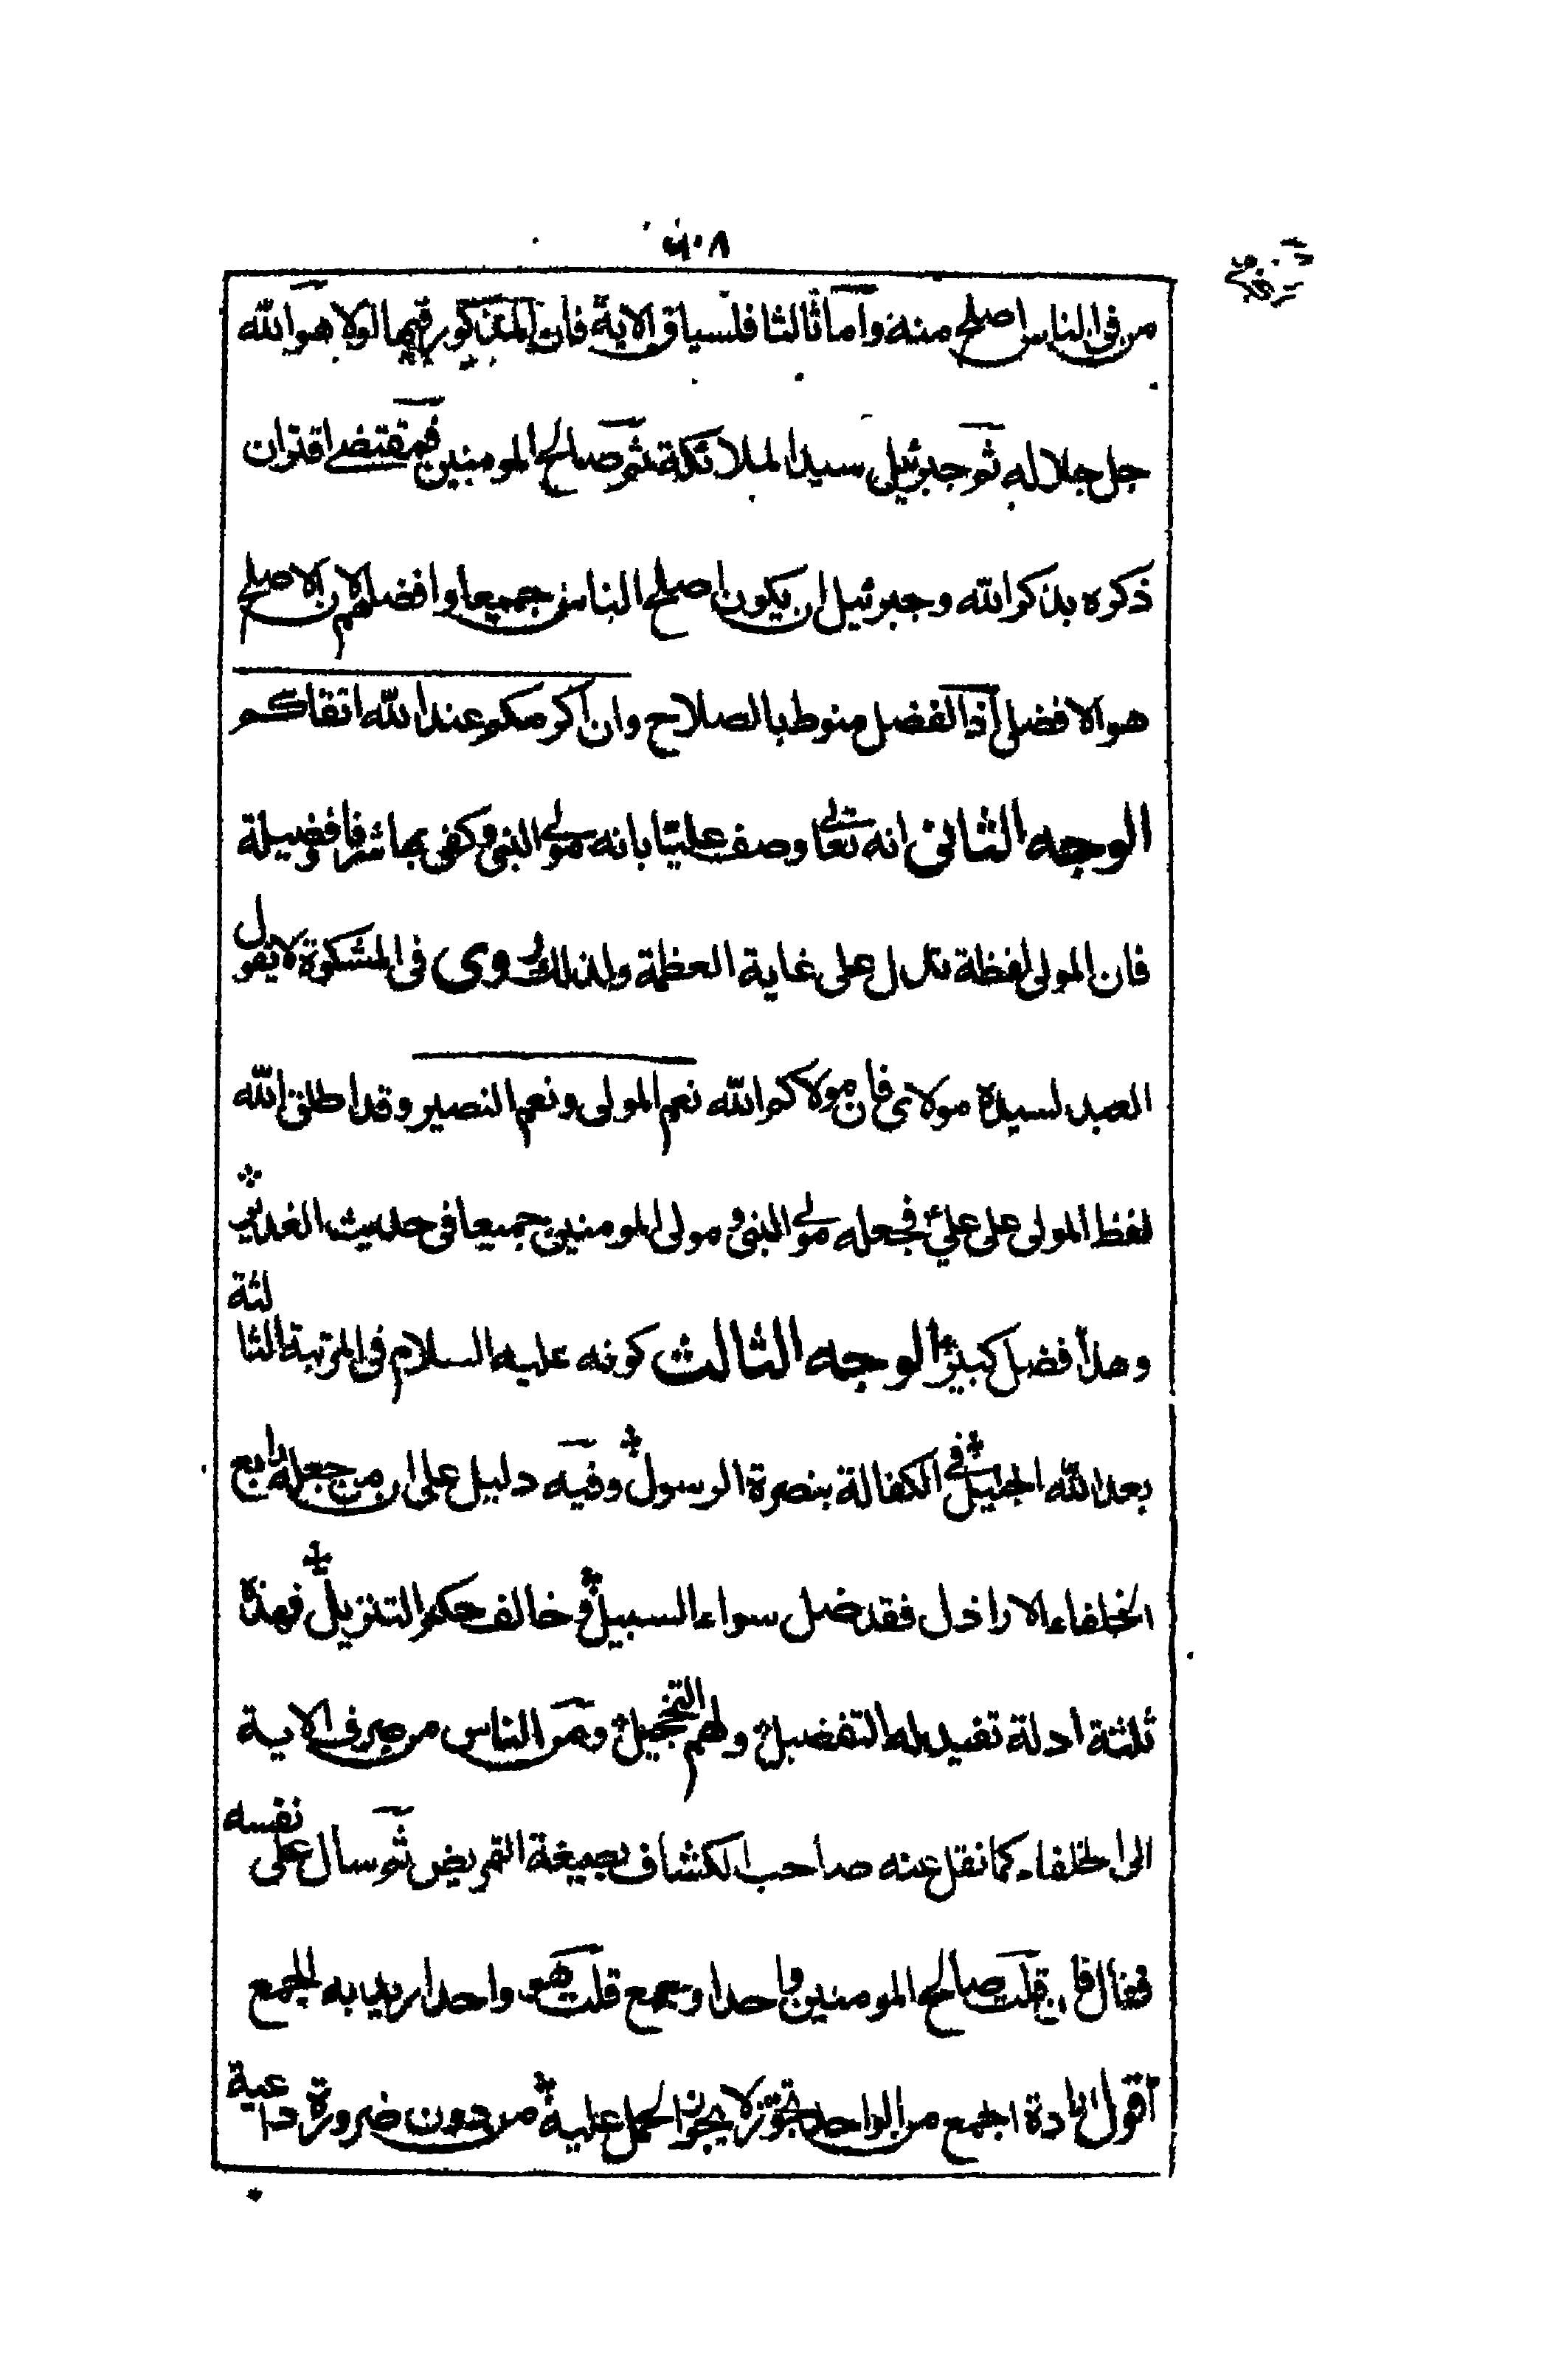 ٦٠٨
من فى الناس اصلح منه واما ثالثا فلسياق الاية فان المذكور فيها اولا هو الله
جل جلاله ثم جبرئيل سيد الملائكة ثم صالح المومنين فمقتضى اقتران
ذكره بذكر الله وجبرئيل ان يكون اصلح الناس جميعا وافضلهم لان الاصلح
هو الافضل اذ الفضل منوط بالصلاح وان اكرمكم عند الله اتقاكم
الوجه الثانى انه تعالى وصف عليّا بانه مولى النبى وكفى بها شرفا وفضيلة
فان المولى لفظة تدل على غاية العظمة ولذلك روى فى المشكوة لا يقول
العبد لسيده مولاى فان مولاكم الله نعم المولى ونعم النصير وقد اطلق الله
لفظ المولى على علىّ فجعله مولى النبى و مولى المومنين جميعا فى حديث الغدير
وهذا فضل كبير الوجه الثالث كونه عليه السلام فى المرتبة الثالثة
بعد الله الجليل فى الكفالة بنصرة الرسول وفيه دليل على ان من جعله رابع
الخلفاء الاراذل فقد ضل سواء السبيل و خالف حكم التنزيل فهذه
ثلثة ادلة تفيد له التفضيل ولهم التخجيل ومن الناس من صرف الاية
الى الخلفاء كما نقل عنه صاحب الكشاف بصيغة التمريض ثم سال على نفسه
فقال فان قلت صالح المومنين واحد او جمع قلت هو واحد اريد به الجمع
اقول ارادة الجمع من الواحد تجوّز لا يجوز الحمل عليه من دون ضرورة داعية